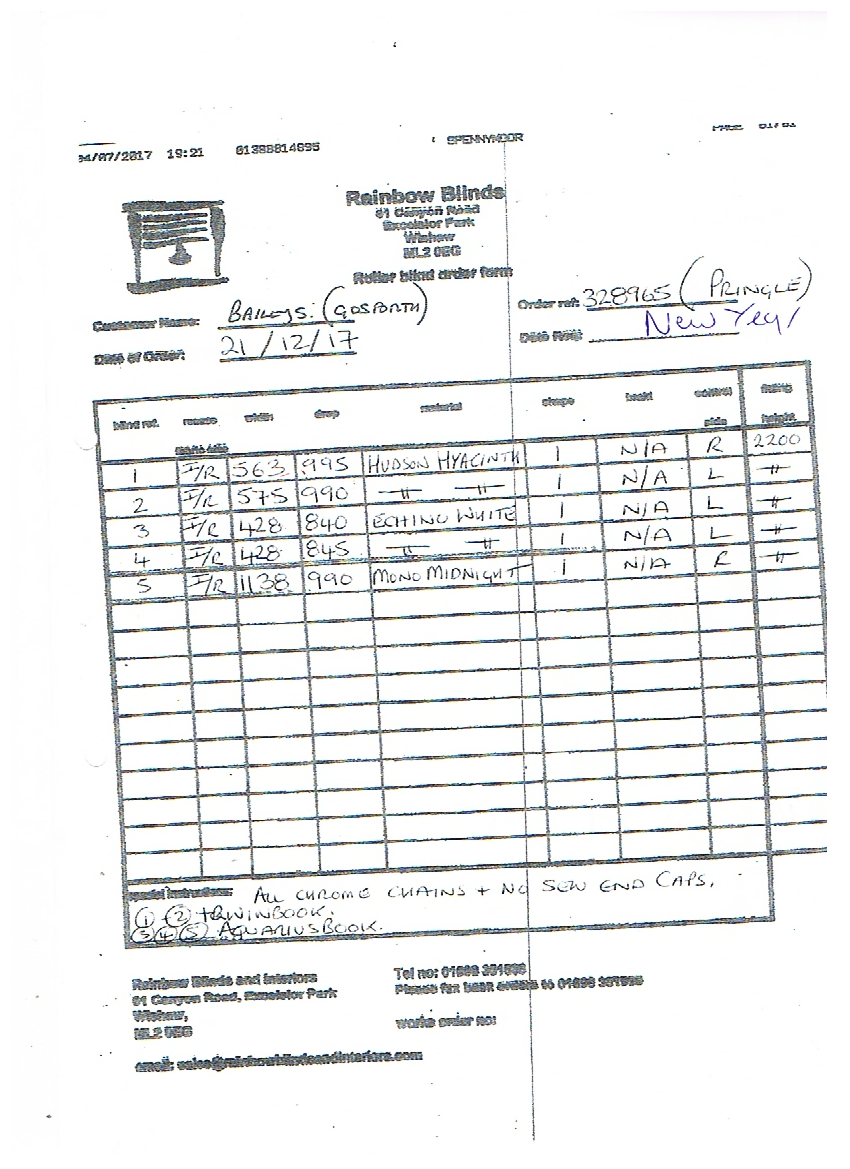 04/07/2017 19:21 01388814695 SPENNYMOOR PAGE 01/01
Rainbow Blinds
61 Canyon Road
Excelsior Park
Wishaw
ML2 0EG
Roller blind order form
Customer Name: BAILEYS. (GOSFORTH) Order ref: 328965 (PRINGLE)
Date of Order: 21/12/17 New Year
blind ref. width drop material shape control side fitting height
1 I/R 563 995 HUDSON HYACINTH 1 N/A R 2200
2 I/R 575 990 -11- -11- 1 N/A L -11-
3 I/R 428 840 ECHINO WHITE 1 N/A L -11-
4 I/R 428 845 -11- -11- 1 N/A L -11-
5 I/R 1138 990 MONO MIDNIGHT 1 N/A R -11-
special instructions: ALL CHROME CHAINS + NO SEW END CAPS.
① ②
③ ④ ⑤ AQUARIUS BOOK.
Rainbow Blinds and Interiors Tel no: 01698
61 Canyon Road, Excelsior Park Please fax back orders to 01698
Wishaw,
ML2 0EG works order no:
email: sales@rainbowblindsandinteriors.com